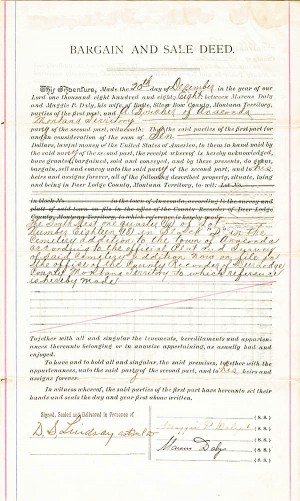 BARGAIN AND SALE DEED.
This Indenture, Made the 20th day of December in the year of our
Lord one thousand eight hundred and eighty; eight; between Marcus Daly
and Maggie P. Daly, his wife of Butte, Silver Bow County, Montana Territory,
parties of the first part, and of Anaconda
Montana Territory
party of the second part, witnesseth: That the said parties of the first part for
and in consideration of the sum of Ten
Dollars, lawful money of the United States of America, to them in hand paid by
the said party of the second part, receipt whereof is hereby acknowledged,
have granted, bargained, sold and conveyed, and by these presents, do grant,
bargain, sell and convey unto the said party of the second part, and to his
heirs and assigns forever, all of the following described property, situate, lying
and being in Deer Lodge County, Montana Territory, to wit: Lot No
in block No in the town of Anaconda, according to the survey and
plat of said town on file in the office of the County Recorder of Deer Lodge
County, Montana Territory, to which reference is hereby made
The South West one quarter of Lot
Number Eighteen in Block in the
Cemetery addition to the town of Anaconda
according to the official plat and survey
of said Cemetery addition now on file in
the office of the County Recorder of Deer Lodge
County Montana Territory to which reference
is hereby made
Together with all and singular the tenements, hereditaments and appurten-
ances thereunto belonging or in anywise appertaining, as usually had and
enjoyed.
To have and to hold all and singular, the said premises, together with the
appurtenances, unto the said party of the second part, and to his heirs and
assigns forever.
In witness whereof, the said parties of the first part have hereunto set their
hands and seals the day and year first above written.
Signed, Sealed and Delivered in Presence of
D. S. Lindsay
Maggie P. (L. S.)
Marcus Daly (L. S.)
(L. S.)
(L. S.)